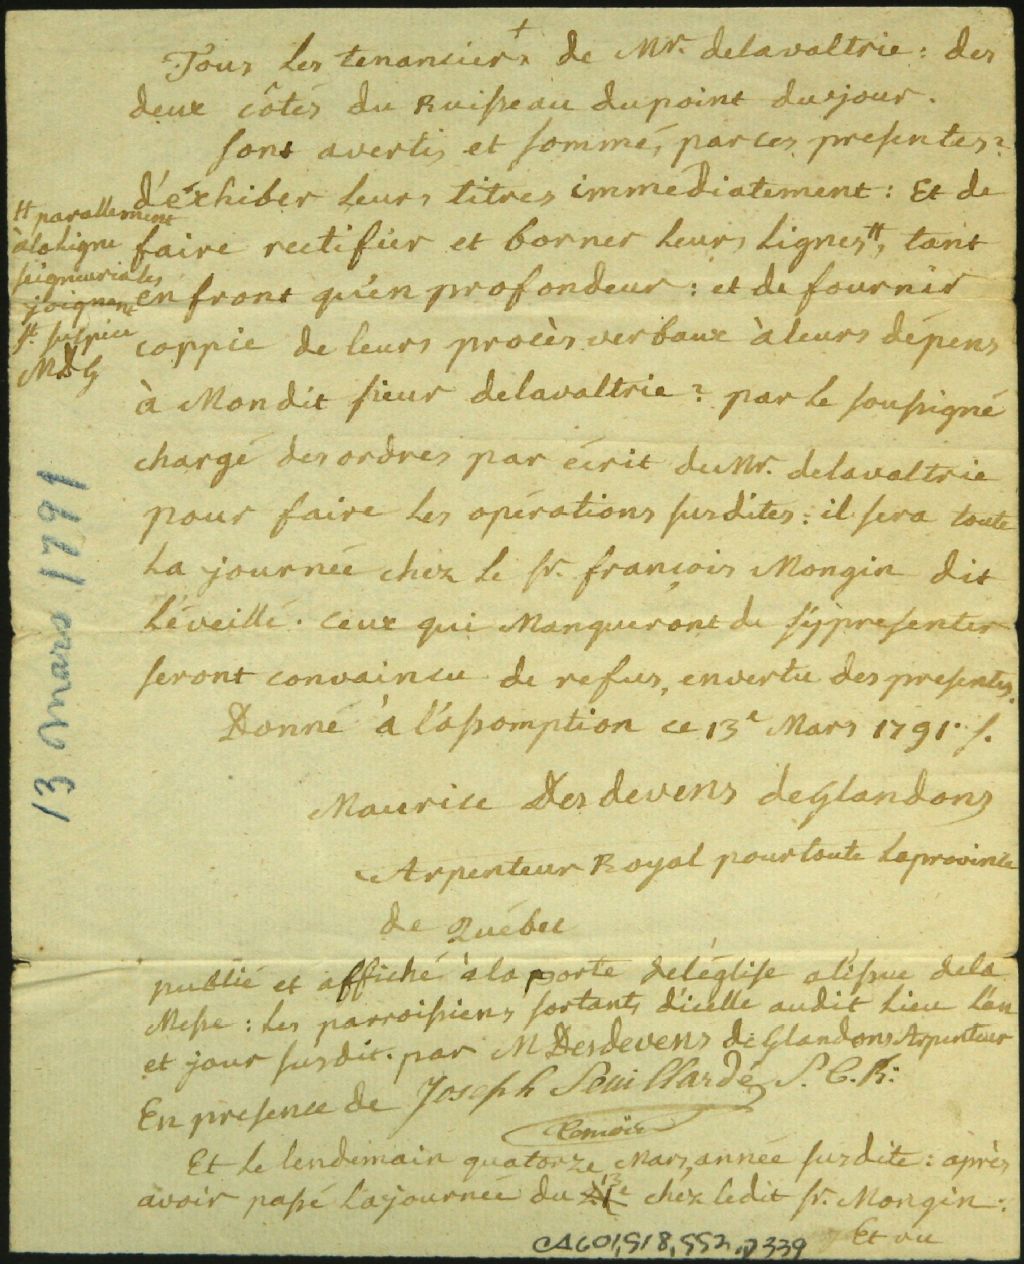 Tous les tenanciers + de Mr. delavaltrie : des
deux côtés du Ruisseau dupoint dujour.
sont avertis et sommé, par ces presentes ?
d'éxhiber leurs titres immediatement : Et de
faire rectifier et borner leurs Lignes #, tant
en front qu'en profondeur : et de fournir
coppie de leurs procès verbaux à leurs dépens
à Mondit sieur delavaltrie ? par le soussigné
chargé des ordres par écrit du Mr. delavaltrie
pour faire les opérations susdites : il sera toute
La journée chez le Sr. françois Mongin dit
L'éveillé. ceux qui Manqueront de s'ÿ presenter
seront convaincu de refus, en vertu des presentes.
Donné à l'assomption ce 13e Mars 1791. /.
Maurice Desdevens deGlandons
Arpenteur Royal pour toute la province
de Québec
# parallement
à la Ligne
seigneuriales
joignant
St. sulpice
MDG
13 mars 1791
publié et affiché à la porte de l'église a l'issue de la
Messe : les parroissiens sortants d'icelle audit Lieu L'an
et jour susdit. par M Desdevens deGlandons Arpenteur
En presence de Joseph Souillardé S. C. R :
Temoin
Et le lendemain quatorze Mars, année susdite : après
avoir passé la journée du 13e chéz ledit Sr. Mongin :
Et vu
CA601,S18,SS2,P339